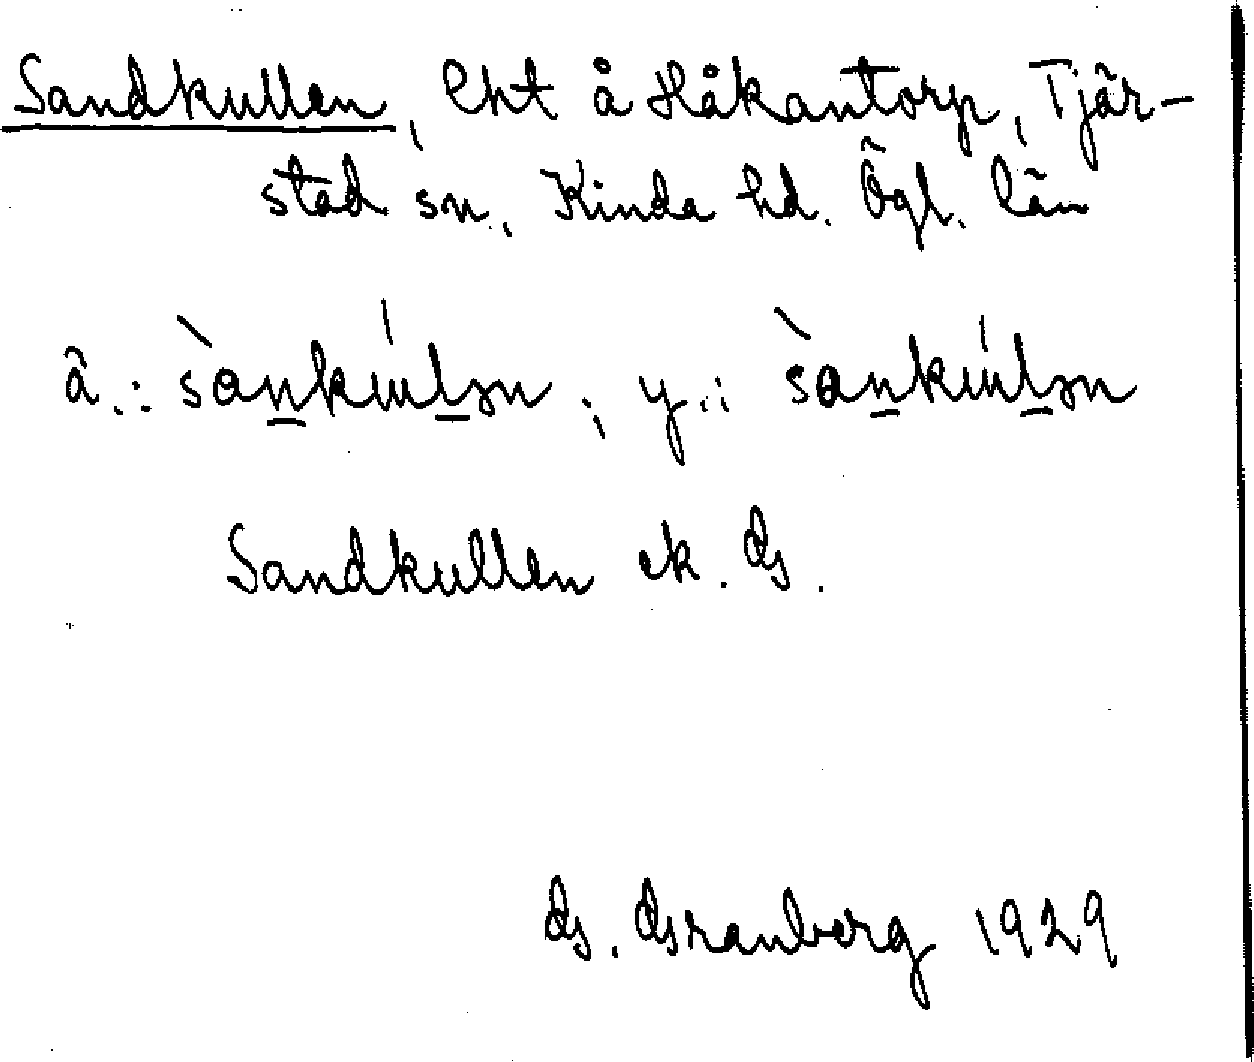 Sandkullen, lht å Håkantorp, Tjär-
stad sn, Kinda hd. Ögl. län
ä.: sànkúlən; y.: sànkúlən
Sandkullen ek. G.
G. Granberg 1929